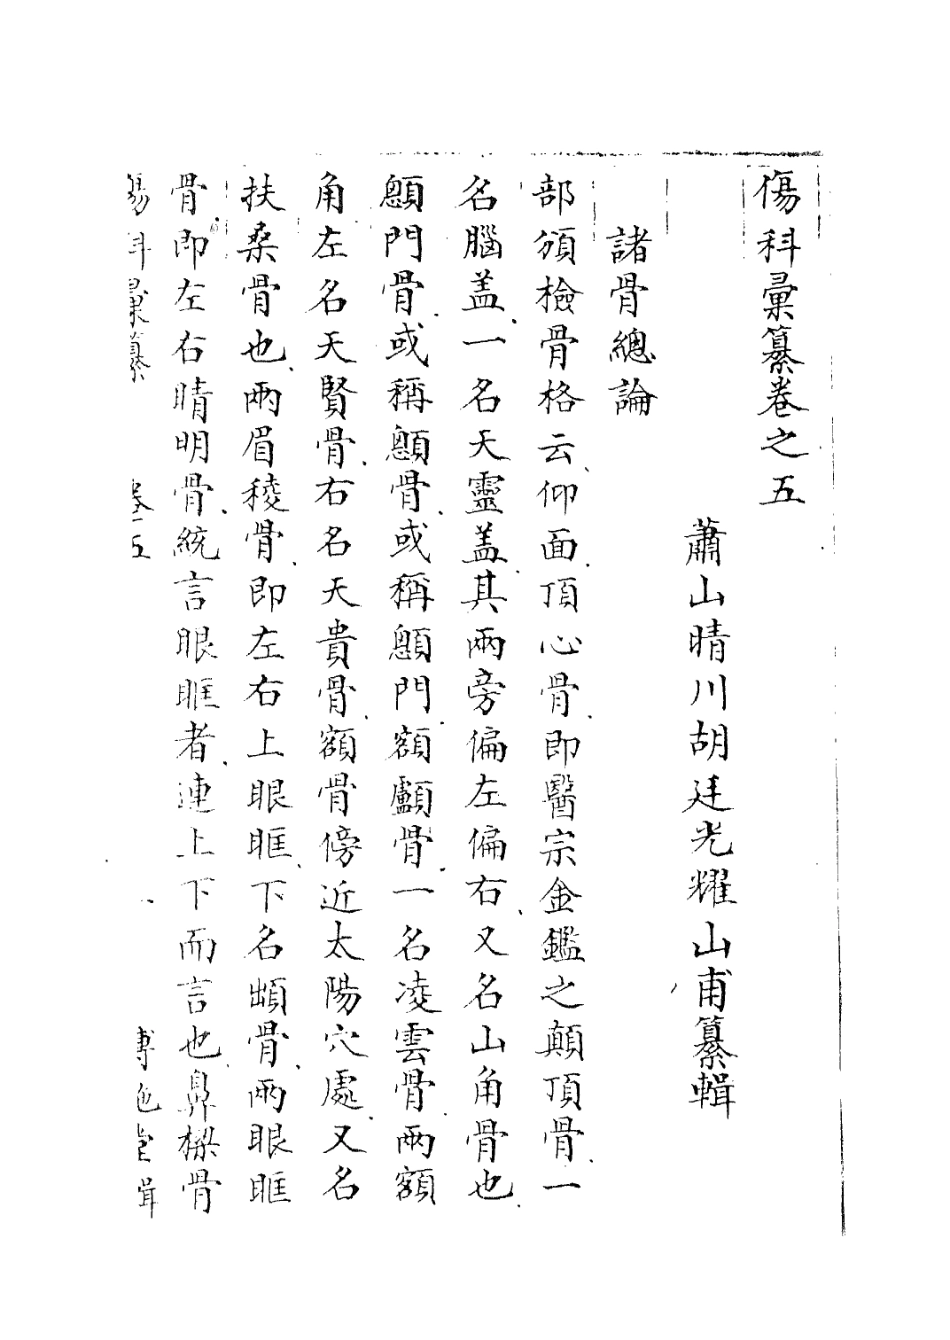 傷科彙纂卷之五
蕭山晴川胡廷光耀山甫纂輯
諸骨總論
部頒檢骨格云仰面頂心骨即醫宗金鑑之顛頂骨一
名腦盖一名天靈盖其兩旁偏左偏右又名山角骨也
顖門骨或稱顖骨或稱顖門額顱骨一名凌雲骨兩額
角左名天賢骨右名天貴骨額骨傍近太陽穴處又名
扶桑骨也兩眉稜骨即左右上眼眶下名䪼骨兩眼眶
骨即左右睛明骨統言眼眶者連上下而言也鼻樑骨
傷科彙纂 卷五 博施堂輯